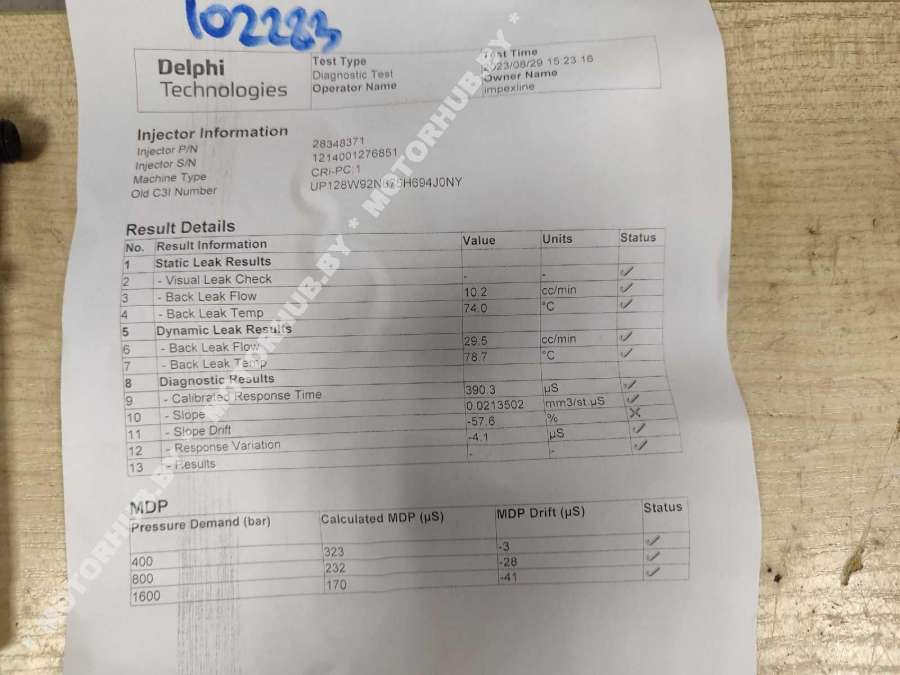 102283
Delphi
Technologies
Test Type
Diagnostic Test
Operator Name
Test Time
2023/08/29 15 23 16
Owner Name
impexline
Injector Information
Injector P/N 28348371
Injector S/N 1214001276851
Machine Type CRi-PC:1
Old C3I Number
Result Details
No. Result Information Value Units Status
1 Static Leak Results
2 - Visual Leak Check - - ✓
3 - Back Leak Flow 10.2 cc/min ✓
4 - Back Leak Temp 74.0 °C ✓
5 Dynamic Leak Results
6 - Back Leak Flow 29.5 cc/min ✓
7 - Back Leak Temp 78.7 °C ✓
8 Diagnostic Results
9 - Calibrated Response Time 390.3 µS ✓
10 - Slope 0.0213502 mm3/st.µS ✓
11 - Slope Drift -57.6 % ✗
12 - Response Variation -4.1 µS ✓
13 - Results - - ✓
MDP
Pressure Demand (bar) Calculated MDP (µS) MDP Drift (µS) Status
400 323 -3 ✓
800 232 -28 ✓
1600 170 -41 ✓
* MOTORHUB.BY * MOTORHUB.BY * MOTORHUB.BY *